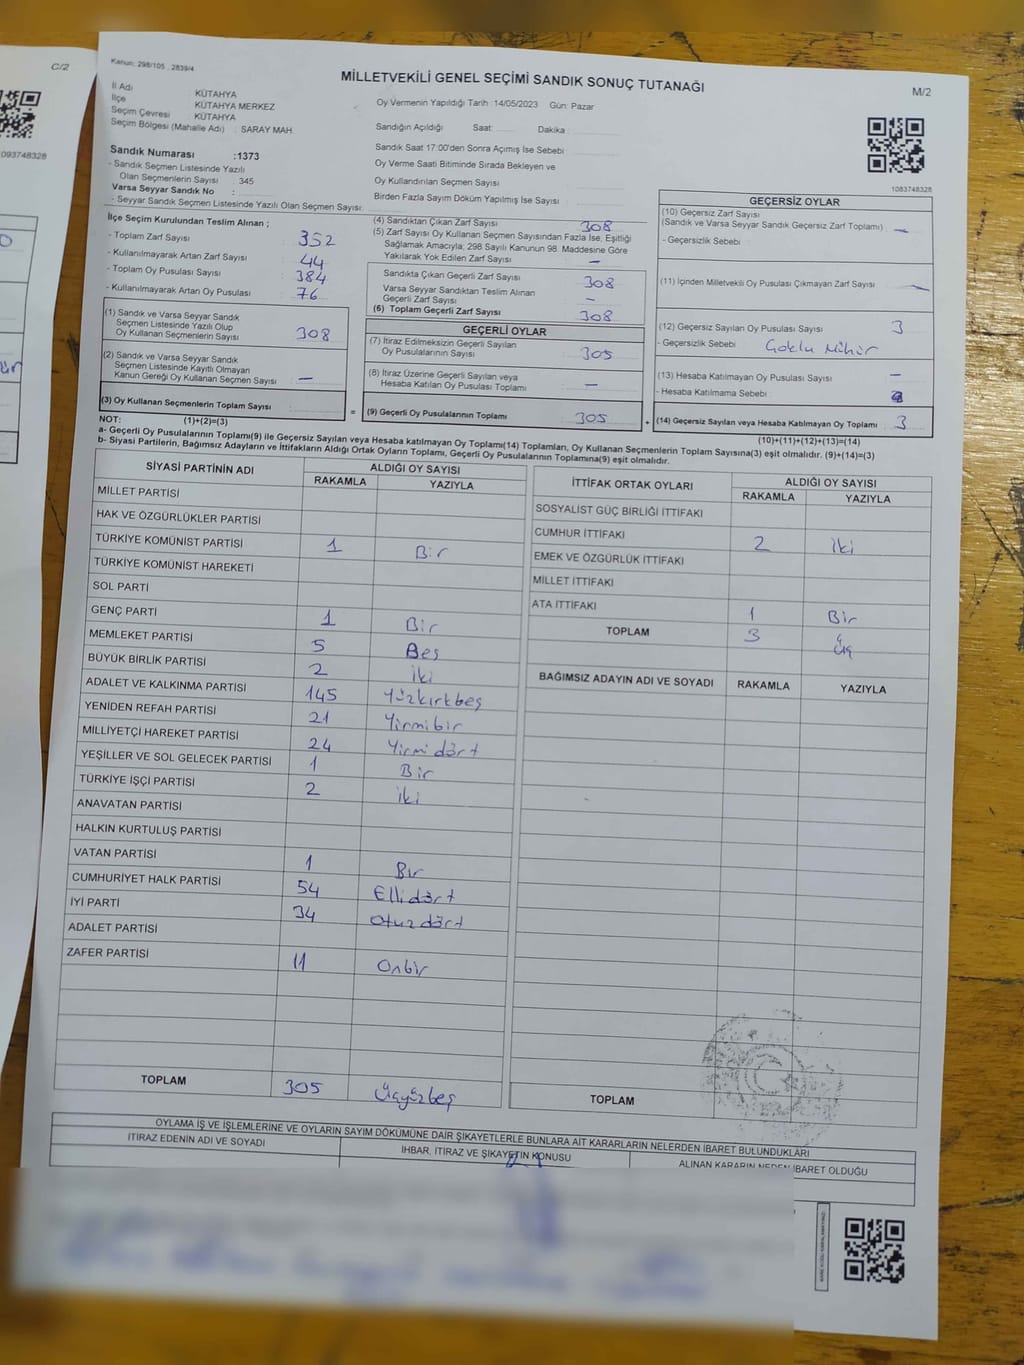 C/2
093748328
Kanun: 298/105 , 2839/4
MİLLETVEKİLİ GENEL SEÇİMİ SANDIK SONUÇ TUTANAĞI
M/2
İl Adı KÜTAHYA
İlçe KÜTAHYA MERKEZ
Seçim Çevresi KÜTAHYA
Seçim Bölgesi (Mahalle Adı) : SARAY MAH.
Oy Vermenin Yapıldığı Tarih :14/05/2023 Gün: Pazar
Sandığın Açıldığı Saat: Dakika :
Sandık Saat 17:00'den Sonra Açımış İse Sebebi
Oy Verme Saati Bitiminde Sırada Bekleyen ve
Oy Kullandırılan Seçmen Sayısı
Birden Fazla Sayım Döküm Yapılmış İse Sayısı :
Sandık Numarası :1373
- Sandık Seçmen Listesinde Yazılı
Olan Seçmenlerin Sayısı : 345
Varsa Seyyar Sandık No :
- Seyyar Sandık Seçmen Listesinde Yazılı Olan Seçmen Sayısı:
1083748328
İlçe Seçim Kurulundan Teslim Alınan ;
- Toplam Zarf Sayısı 352
- Kullanılmayarak Artan Zarf Sayısı 44
- Toplam Oy Pusulası Sayısı 384
- Kullanılmayarak Artan Oy Pusulası 76
(1) Sandık ve Varsa Seyyar Sandık
Seçmen Listesinde Yazılı Olup
Oy Kullanan Seçmenlerin Sayısı 308
(2) Sandık ve Varsa Seyyar Sandık
Seçmen Listesinde Kayıtlı Olmayan
Kanun Gereği Oy Kullanan Seçmen Sayısı —
(3) Oy Kullanan Seçmenlerin Toplam Sayısı
(4) Sandıktan Çıkan Zarf Sayısı 308
(5) Zarf Sayısı Oy Kullanan Seçmen Sayısından Fazla İse, Eşitliği
Sağlamak Amacıyla; 298 Sayılı Kanunun 98. Maddesine Göre
Yakılarak Yok Edilen Zarf Sayısı —
Sandıkta Çıkan Geçerli Zarf Sayısı 308
Varsa Seyyar Sandıktan Teslim Alınan
Geçerli Zarf Sayısı —
(6) Toplam Geçerli Zarf Sayısı 308
GEÇERLİ OYLAR
(7) İtiraz Edilmeksizin Geçerli Sayılan
Oy Pusulalarının Sayısı 305
(8) İtiraz Üzerine Geçerli Sayılan veya
Hesaba Katılan Oy Pusulası Toplamı —
= (9) Geçerli Oy Pusulalarının Toplamı 305
GEÇERSİZ OYLAR
(10) Geçersiz Zarf Sayısı
(Sandık ve Varsa Seyyar Sandık Geçersiz Zarf Toplamı) —
- Geçersizlik Sebebi :
(11) İçinden Milletvekili Oy Pusulası Çıkmayan Zarf Sayısı —
(12) Geçersiz Sayılan Oy Pusulası Sayısı 3
- Geçersizlik Sebebi Çoklu Mühür
(13) Hesaba Katılmayan Oy Pusulası Sayısı —
- Hesaba Katılmama Sebebi
+ (14) Geçersiz Sayılan veya Hesaba Katılmayan Oy Toplamı 3
NOT: (1)+(2)=(3)
(10)+(11)+(12)+(13)=(14)
a- Geçerli Oy Pusulalarının Toplamı(9) ile Geçersiz Sayılan veya Hesaba katılmayan Oy Toplamı(14) Toplamları, Oy Kullanan Seçmenlerin Toplam Sayısına(3) eşit olmalıdır. (9)+(14)=(3)
b- Siyasi Partilerin, Bağımsız Adayların ve İttifakların Aldığı Ortak Oyların Toplamı, Geçerli Oy Pusulalarının Toplamına(9) eşit olmalıdır.
SİYASİ PARTİNİN ADI ALDIĞI OY SAYISI
RAKAMLA YAZIYLA
MİLLET PARTİSİ
HAK VE ÖZGÜRLÜKLER PARTİSİ
TÜRKİYE KOMÜNİST PARTİSİ 1 Bir
TÜRKİYE KOMÜNİST HAREKETİ
SOL PARTİ
GENÇ PARTİ 1 Bir
MEMLEKET PARTİSİ 5 Beş
BÜYÜK BİRLİK PARTİSİ 2 iki
ADALET VE KALKINMA PARTİSİ 145 Yüzkırkbeş
YENİDEN REFAH PARTİSİ 21 Yirmibir
MİLLİYETÇİ HAREKET PARTİSİ 24 Yirmidört
YEŞİLLER VE SOL GELECEK PARTİSİ 1 Bir
TÜRKİYE İŞÇİ PARTİSİ 2 iki
ANAVATAN PARTİSİ
HALKIN KURTULUŞ PARTİSİ
VATAN PARTİSİ 1 Bir
CUMHURİYET HALK PARTİSİ 54 Ellidört
İYİ PARTİ 34 Otuzdört
ADALET PARTİSİ
ZAFER PARTİSİ 11 Onbir
TOPLAM 305 Üçyüzbeş
İTTİFAK ORTAK OYLARI ALDIĞI OY SAYISI
RAKAMLA YAZIYLA
SOSYALİST GÜÇ BİRLİĞİ İTTİFAKI
CUMHUR İTTİFAKI 2 iki
EMEK VE ÖZGÜRLÜK İTTİFAKI
MİLLET İTTİFAKI
ATA İTTİFAKI 1 Bir
TOPLAM 3 Üç
BAĞIMSIZ ADAYIN ADI VE SOYADI RAKAMLA YAZIYLA
TOPLAM
OYLAMA İŞ VE İŞLEMLERİNE VE OYLARIN SAYIM DÖKÜMÜNE DAİR ŞİKAYETLERLE BUNLARA AİT KARARLARIN NELERDEN İBARET BULUNDUKLARI
İTİRAZ EDENİN ADI VE SOYADI İHBAR, İTİRAZ VE ŞİKAYETİN KONUSU ALINAN KARARIN NEDEN İBARET OLDUĞU